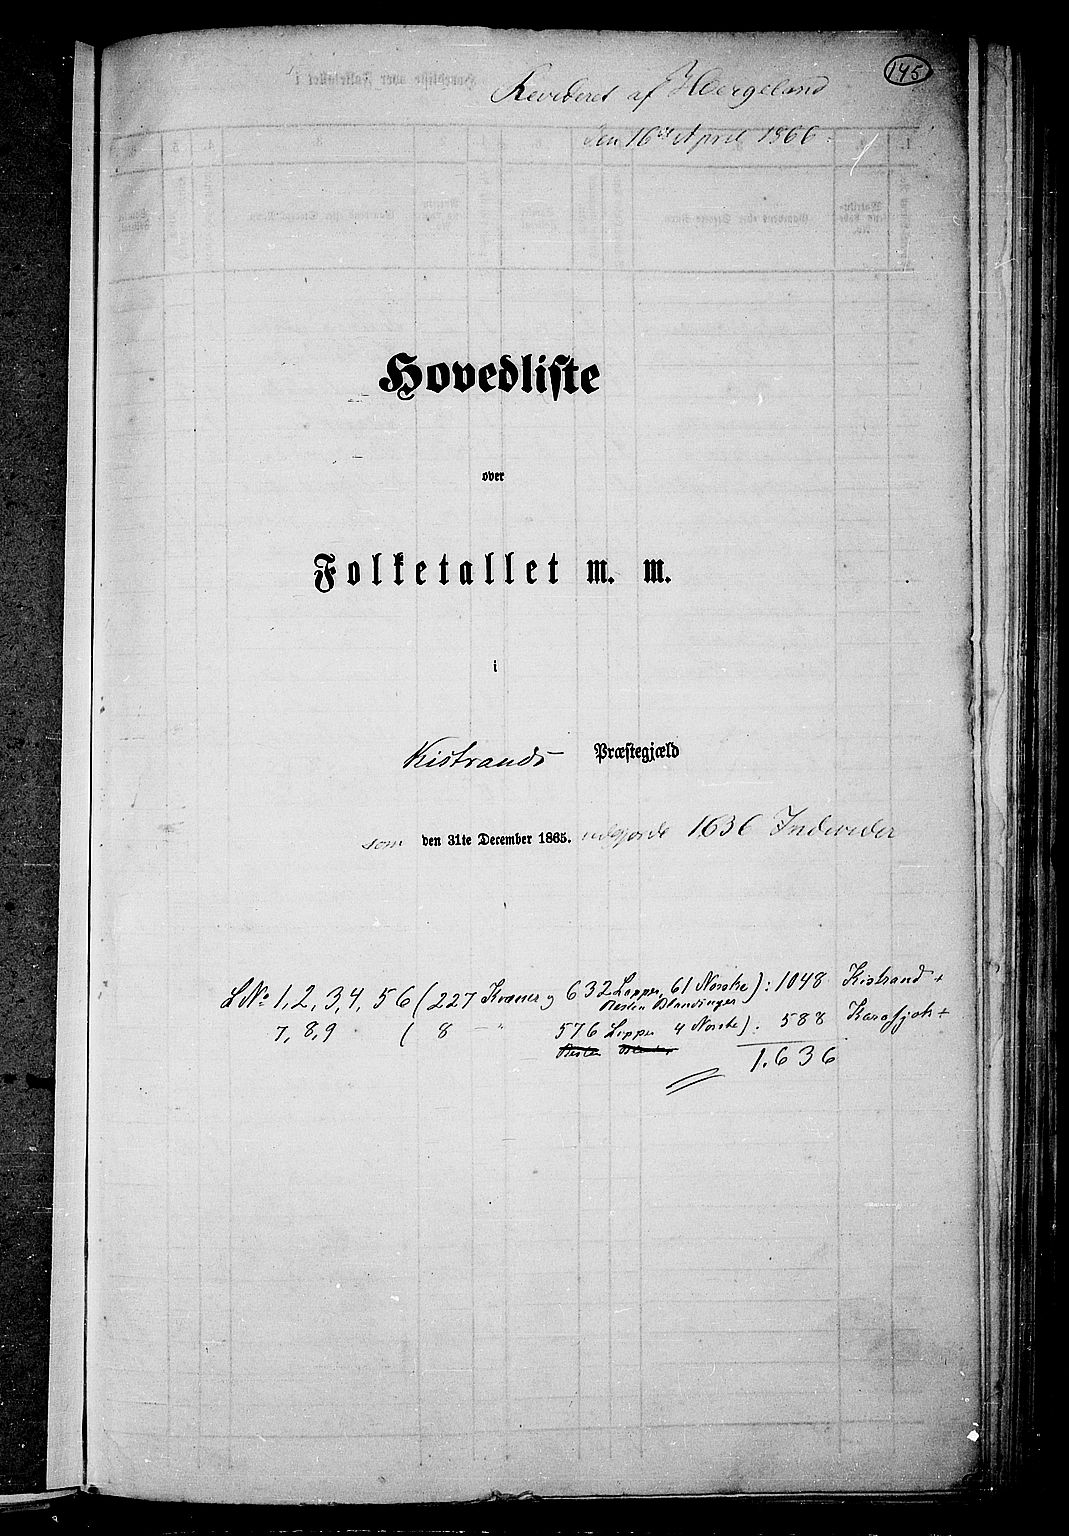 145
Revideret af HWergeland
den 16de April 1866.
Hovedliste
over
Folketallet m. m.
i
Kistrands Præstegjæld
som den 31te December 1865. udgjorde 1636 Individer
LNo 1, 2, 3, 4, 5 6 (227 Kvæner og 632 Lapper, 61 Norske) : 1048 Kistrand +
Resten Blandinger
7, 8, 9 ( 8 — " 576 Lapper 4 Norske) : 588 Karasjok +
Resten
1.636